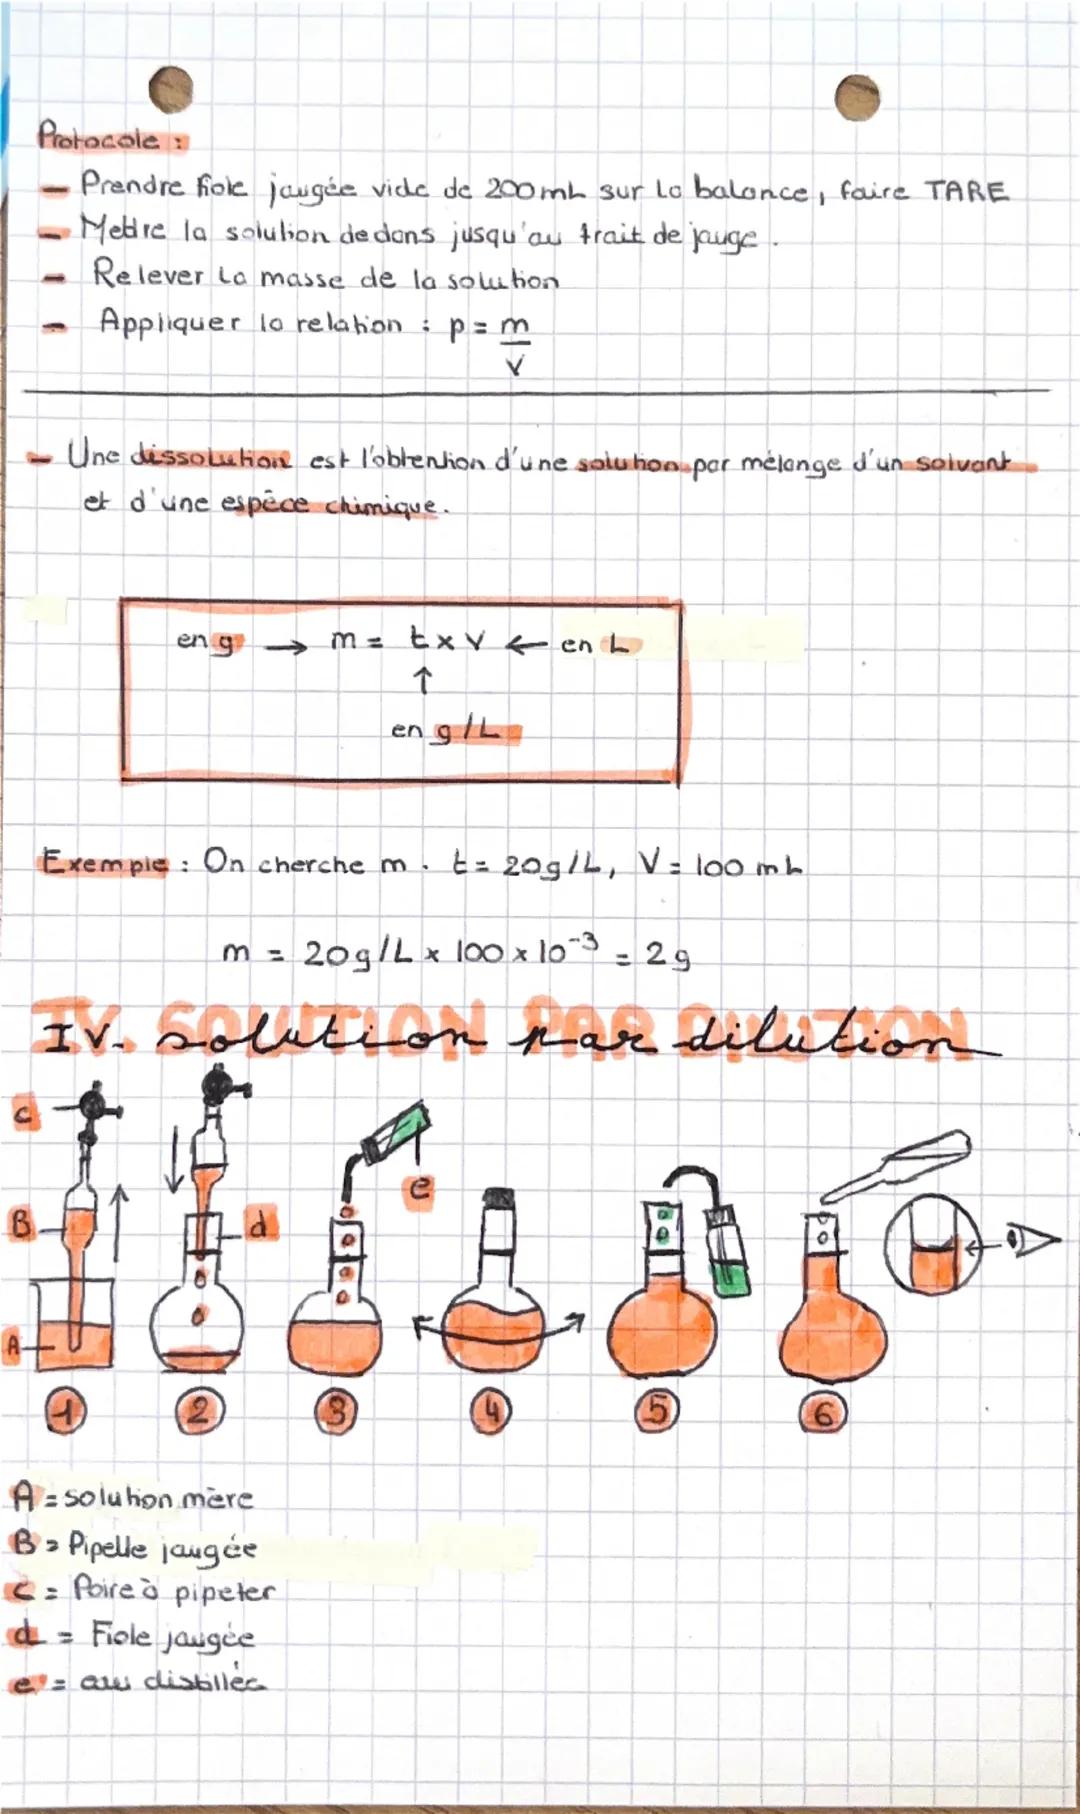 Protocole :
- Prendre fiole jaugée vide de 200 mL sur la balance, faire TARE
- Mettre la solution dedans jusqu'au trait de jauge.
- Relever la masse de la solution
- Appliquer la relation : p = m
V
- Une dissolution est l'obtention d'une solution par mélange d'un solvant
et d'une espèce chimique.
en g → m = t x V ← en L
↑
en g/L
Exemple : On cherche m. t = 20g/L, V = 100 mL
m = 20g/L x 100 x 10⁻³ = 2g
IV. SOLUTION PAR DILUTION
IV. solution par dilution
c
B
A
d
e
1 2 3 4 5 6
A = solution mère
B = Pipette jaugée
C = Poire à pipeter
d = Fiole jaugée
e = eau distillée